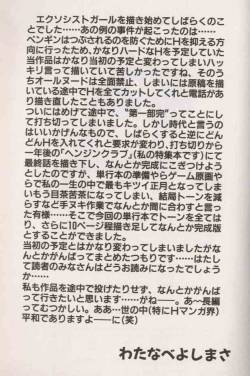 エクソシストガールを描き始めてしばらくのこ
とでした……あの例の事件が起こったのは……
ペンギンはつぶされるのを防ぐためにHを抑える方
向に行ったため、かなりハードなHを予定していた
当作品はかなり当初の予定と変わってしまいハッ
キリ言って描いていて苦しかったですね、そのう
ちオールヌードは全面禁止、しまいには原稿を描
いている途中でHを全てカットしてくれと電話があ
り描き直したこともありました。
ついにはめげて途中で、"第一部完"ってことにし
て打ち切ってしまいました。しかし時代と言うの
はいいかげんなもので、しばらくすると逆にどんど
んHを入れてくれと要求が変わり、打ち切りから
一年後の「ペンジンクラブ」(私の特集本です)にて
最終話を描き下し、なんとか完成にこぎつけよう
としたのですが、単行本の準備やらゲーム原画や
らで私の一生の中で最もキツイ正月となってしま
いもう目茶苦茶になってしまい、結局トーンを減
らすなど手ヌキ作業でなんとか間に合わすと言っ
た有様……そこで今回の単行本でトーンを全ては
り、さらに10ページ程描き足してなんとか完成版
とすることができました。
当初の予定とはかなり変わってしまいましたがな
んとかがんばってまとめたつもりです……はたし
て読者のみなさんはどうお読みになったでしょう
か……
私も作品を途中で投げたりせず、なんとかがんば
って行きたいと思います……がねー。あ～長編
ってむつかしい。ああ…世の中(特にHマンガ界)
平和でありますよーに(笑)
わたなべよしまさ